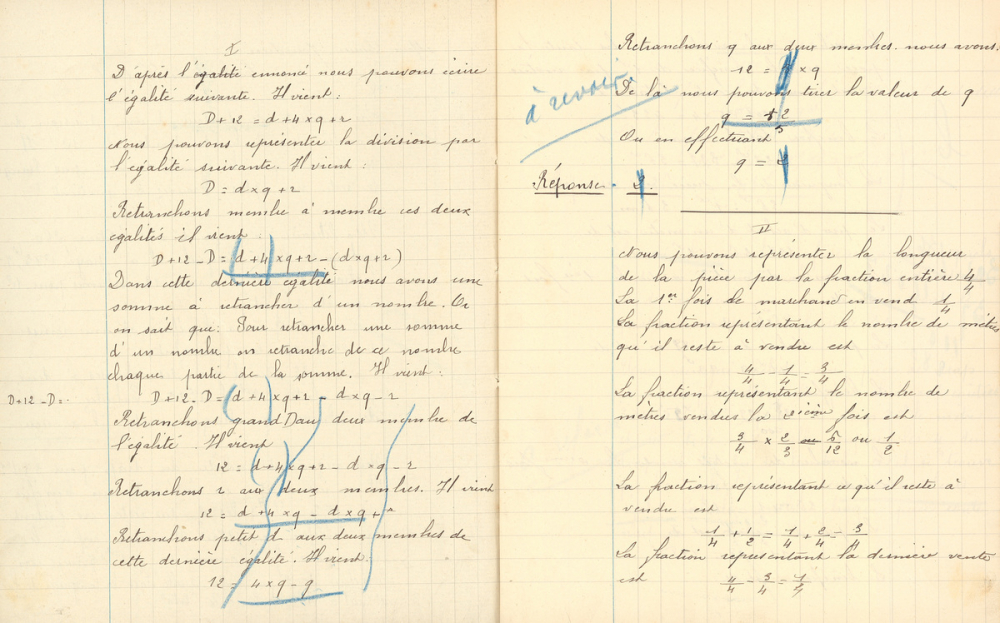 I
D'après l'égalité énoncé nous pouvons écrire
l'égalité suivante. Il vient :
D + 12 = d + 4 × q + r
Nous pouvons représenter la division par
l'égalité suivante. Il vient :
D = d × q + r
Retranchons membre à membre ces deux
égalités il vient :
D + 12 - D = d + 4 × q + r - (d × q + r)
Dans cette dernière égalité nous avons une
somme à retrancher d'un nombre. Or
on sait que : Pour retrancher une somme
d'un nombre on retranche de ce nombre
chaque partie de la somme. Il vient :
D + 12 - D = d + 4 × q + r - d × q - r
D + 12 - D = .
Retranchons grand D au deux membre de
l'égalité. Il vient
12 = d + 4 × q + r - d × q - r
Retranchons r aux deux membres. Il vient
12 = d + 4 × q - d × q +
Retranchons petit d aux deux membres de
cette dernière égalité. Il vient :
12 = 4 × q - q
Retranchons q aux deux membres. nous avons.
12 = × q
à revoir
De là nous pouvons tirer la valeur de q
q = 12
Ou en effectuant
q =
Réponse .
II
Nous pouvons représenter la longueur
de la pièce par la fraction entière 4/4
La 1er fois le marchand en vend 1/4
La fraction représentant le nombre de mètres
qu'il reste à vendre est
4/4 - 1/4 = 3/4
La fraction représentant le nombre de
mètres vendus la 2ième fois est
3/4 × 2/3 ou 6/12 ou 1/2
La fraction représentant ce qu'il reste à
vendre est
1/4 + 1/2 = 1/4 + 2/4 = 3/4
La fraction représentant la dernière vente
est 4/4 - 3/4 = 1/4